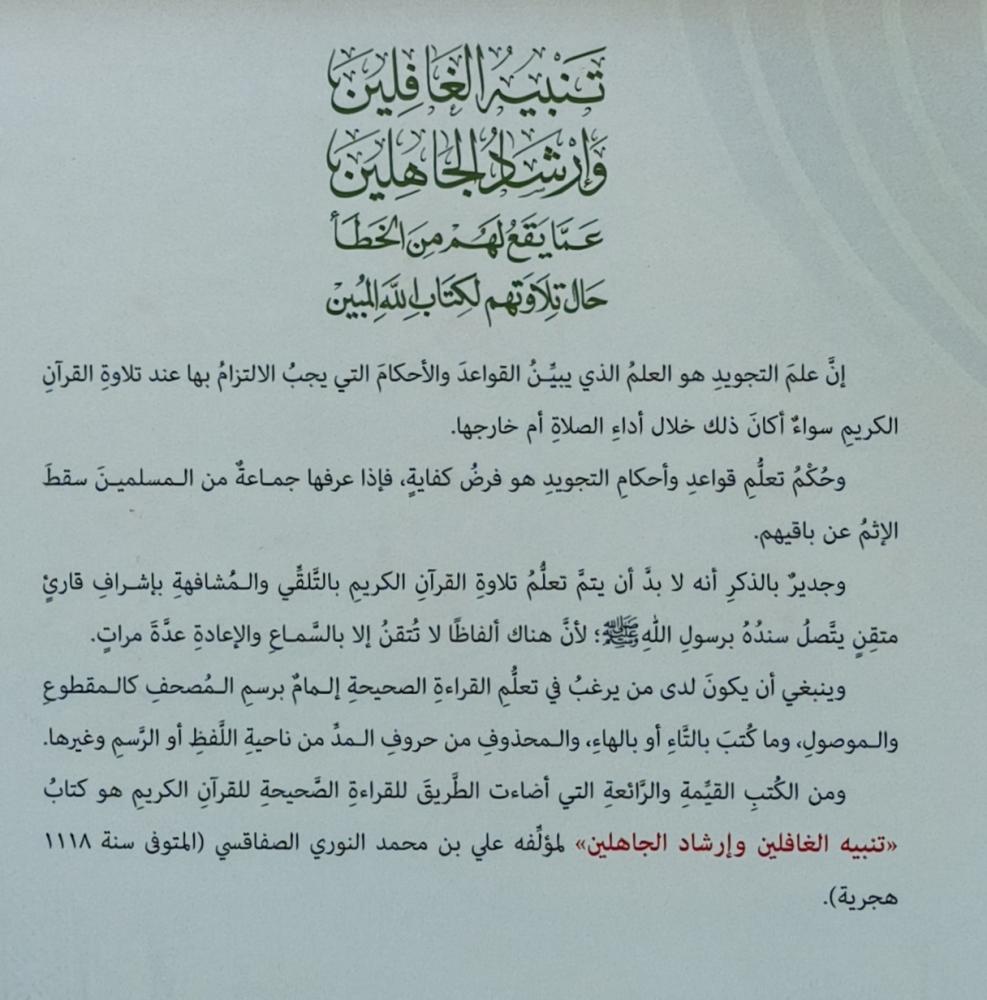 تَنبْيهُ الغَافِلينَ
وَإِرْشَادُ الجَاهِلينَ
عَمَّا يَقَعُ لَهُمْ مِنَ الخَطَأ
حَال تِلَاوَتهم لكِتَابِ اللَّهِ المُبين
إنَّ علمَ التجويدِ هو العلمُ الذي يبيِّـنُ القواعدَ والأحكامَ التي يجبُ الالتزامُ بها عند تلاوةِ القرآنِ
الكريمِ سواءٌ أكانَ ذلك خلال أداءِ الصلاةِ أم خارجها.
وحُكْمُ تعلُّمِ قواعدِ وأحكامِ التجويدِ هو فرضُ كفايةٍ، فإذا عرفها جمـاعةٌ من الـمسلميـنَ سقطَ
الإثمُ عن باقيهم.
وجديرٌ بالذكرِ أنه لا بدَّ أن يتمَّ تعلُّمُ تلاوةِ القرآنِ الكريمِ بالتَّلقِّي والـمُشافهةِ بإشـرافِ قارئٍ
متقِنٍ يتَّصلُ سندُهُ برسولِ اللهِ ﷺ؛ لأنَّ هناك ألفاظًا لا تُتقنُ إلا بالسَّمـاعِ والإعادةِ عدَّةَ مراتٍ.
وينبغي أن يكونَ لدى من يرغبُ في تعلُّمِ القراءةِ الصحيحةِ إلـمامٌ برسمِ الـمُصحفِ كالـمقطوعِ
والـموصولِ، وما كُتبَ بالتَّاءِ أو بالهاءِ، والـمحذوفِ من حروفِ الـمدِّ من ناحيةِ اللَّفظِ أو الرَّسمِ وغيرها.
ومن الكُتبِ القيِّمةِ والرَّائعةِ التي أضاءت الطَّريقَ للقراءةِ الصَّحيحةِ للقرآنِ الكريمِ هو كتابُ
«تنبيه الغافلين وإرشاد الجاهلين» لمؤلِّفه علي بن محمد النوري الصفاقسي (المتوفى سنة ١١١٨
هجرية).